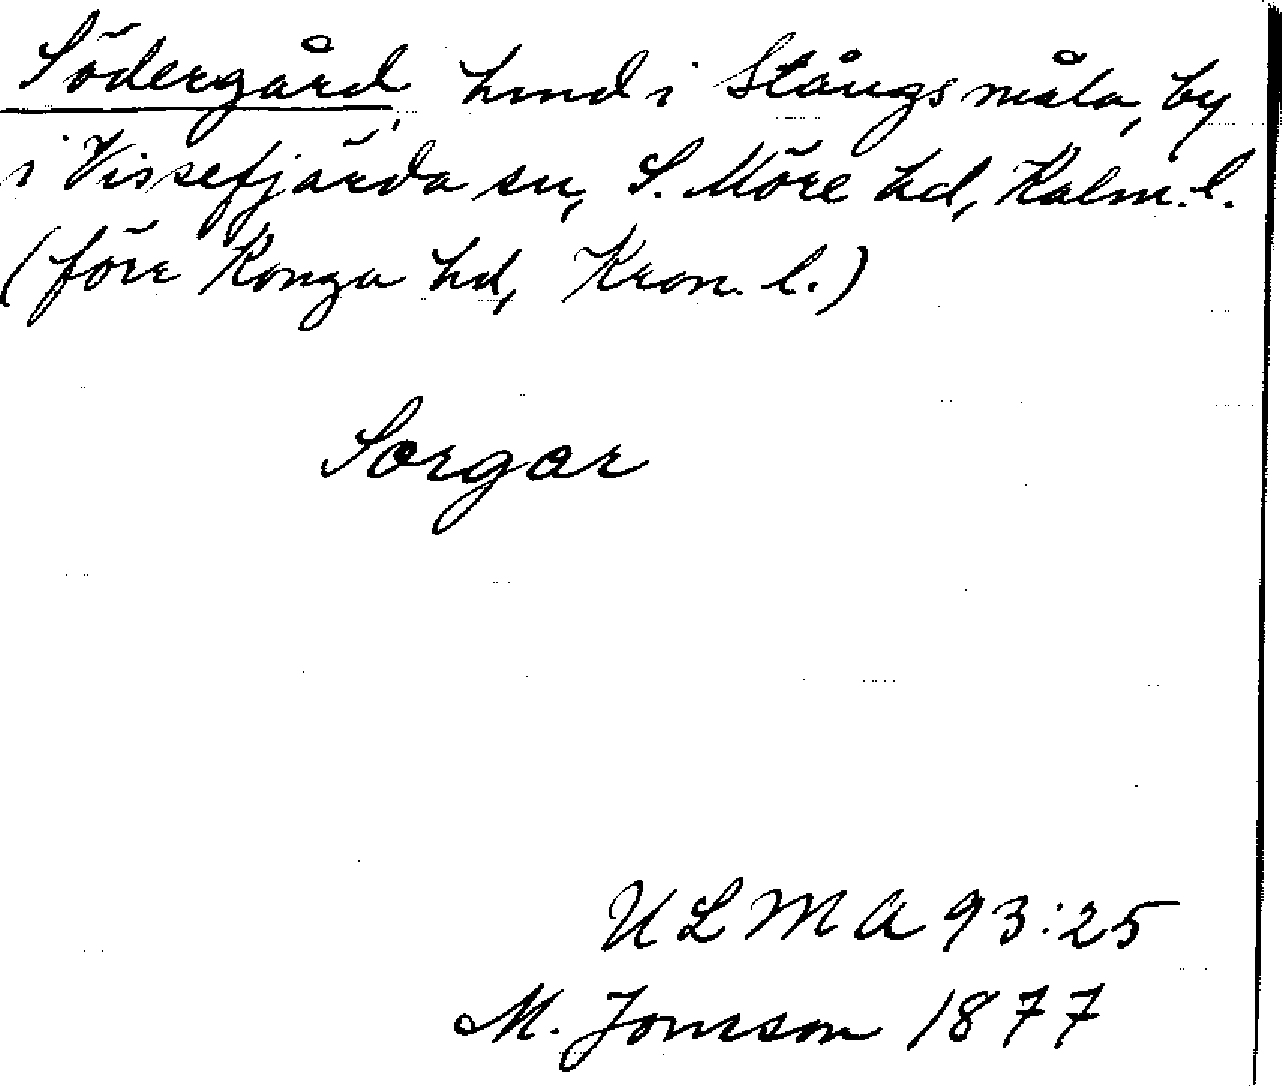 Södergård, hmd i Stångsmåla, by
i Vissefjärda sn, S. Möre hd, Kalm. l.
(förr Konga hd, Kron. l.)
Sorgar
ULMA 93:25
M. Jonsson 1877